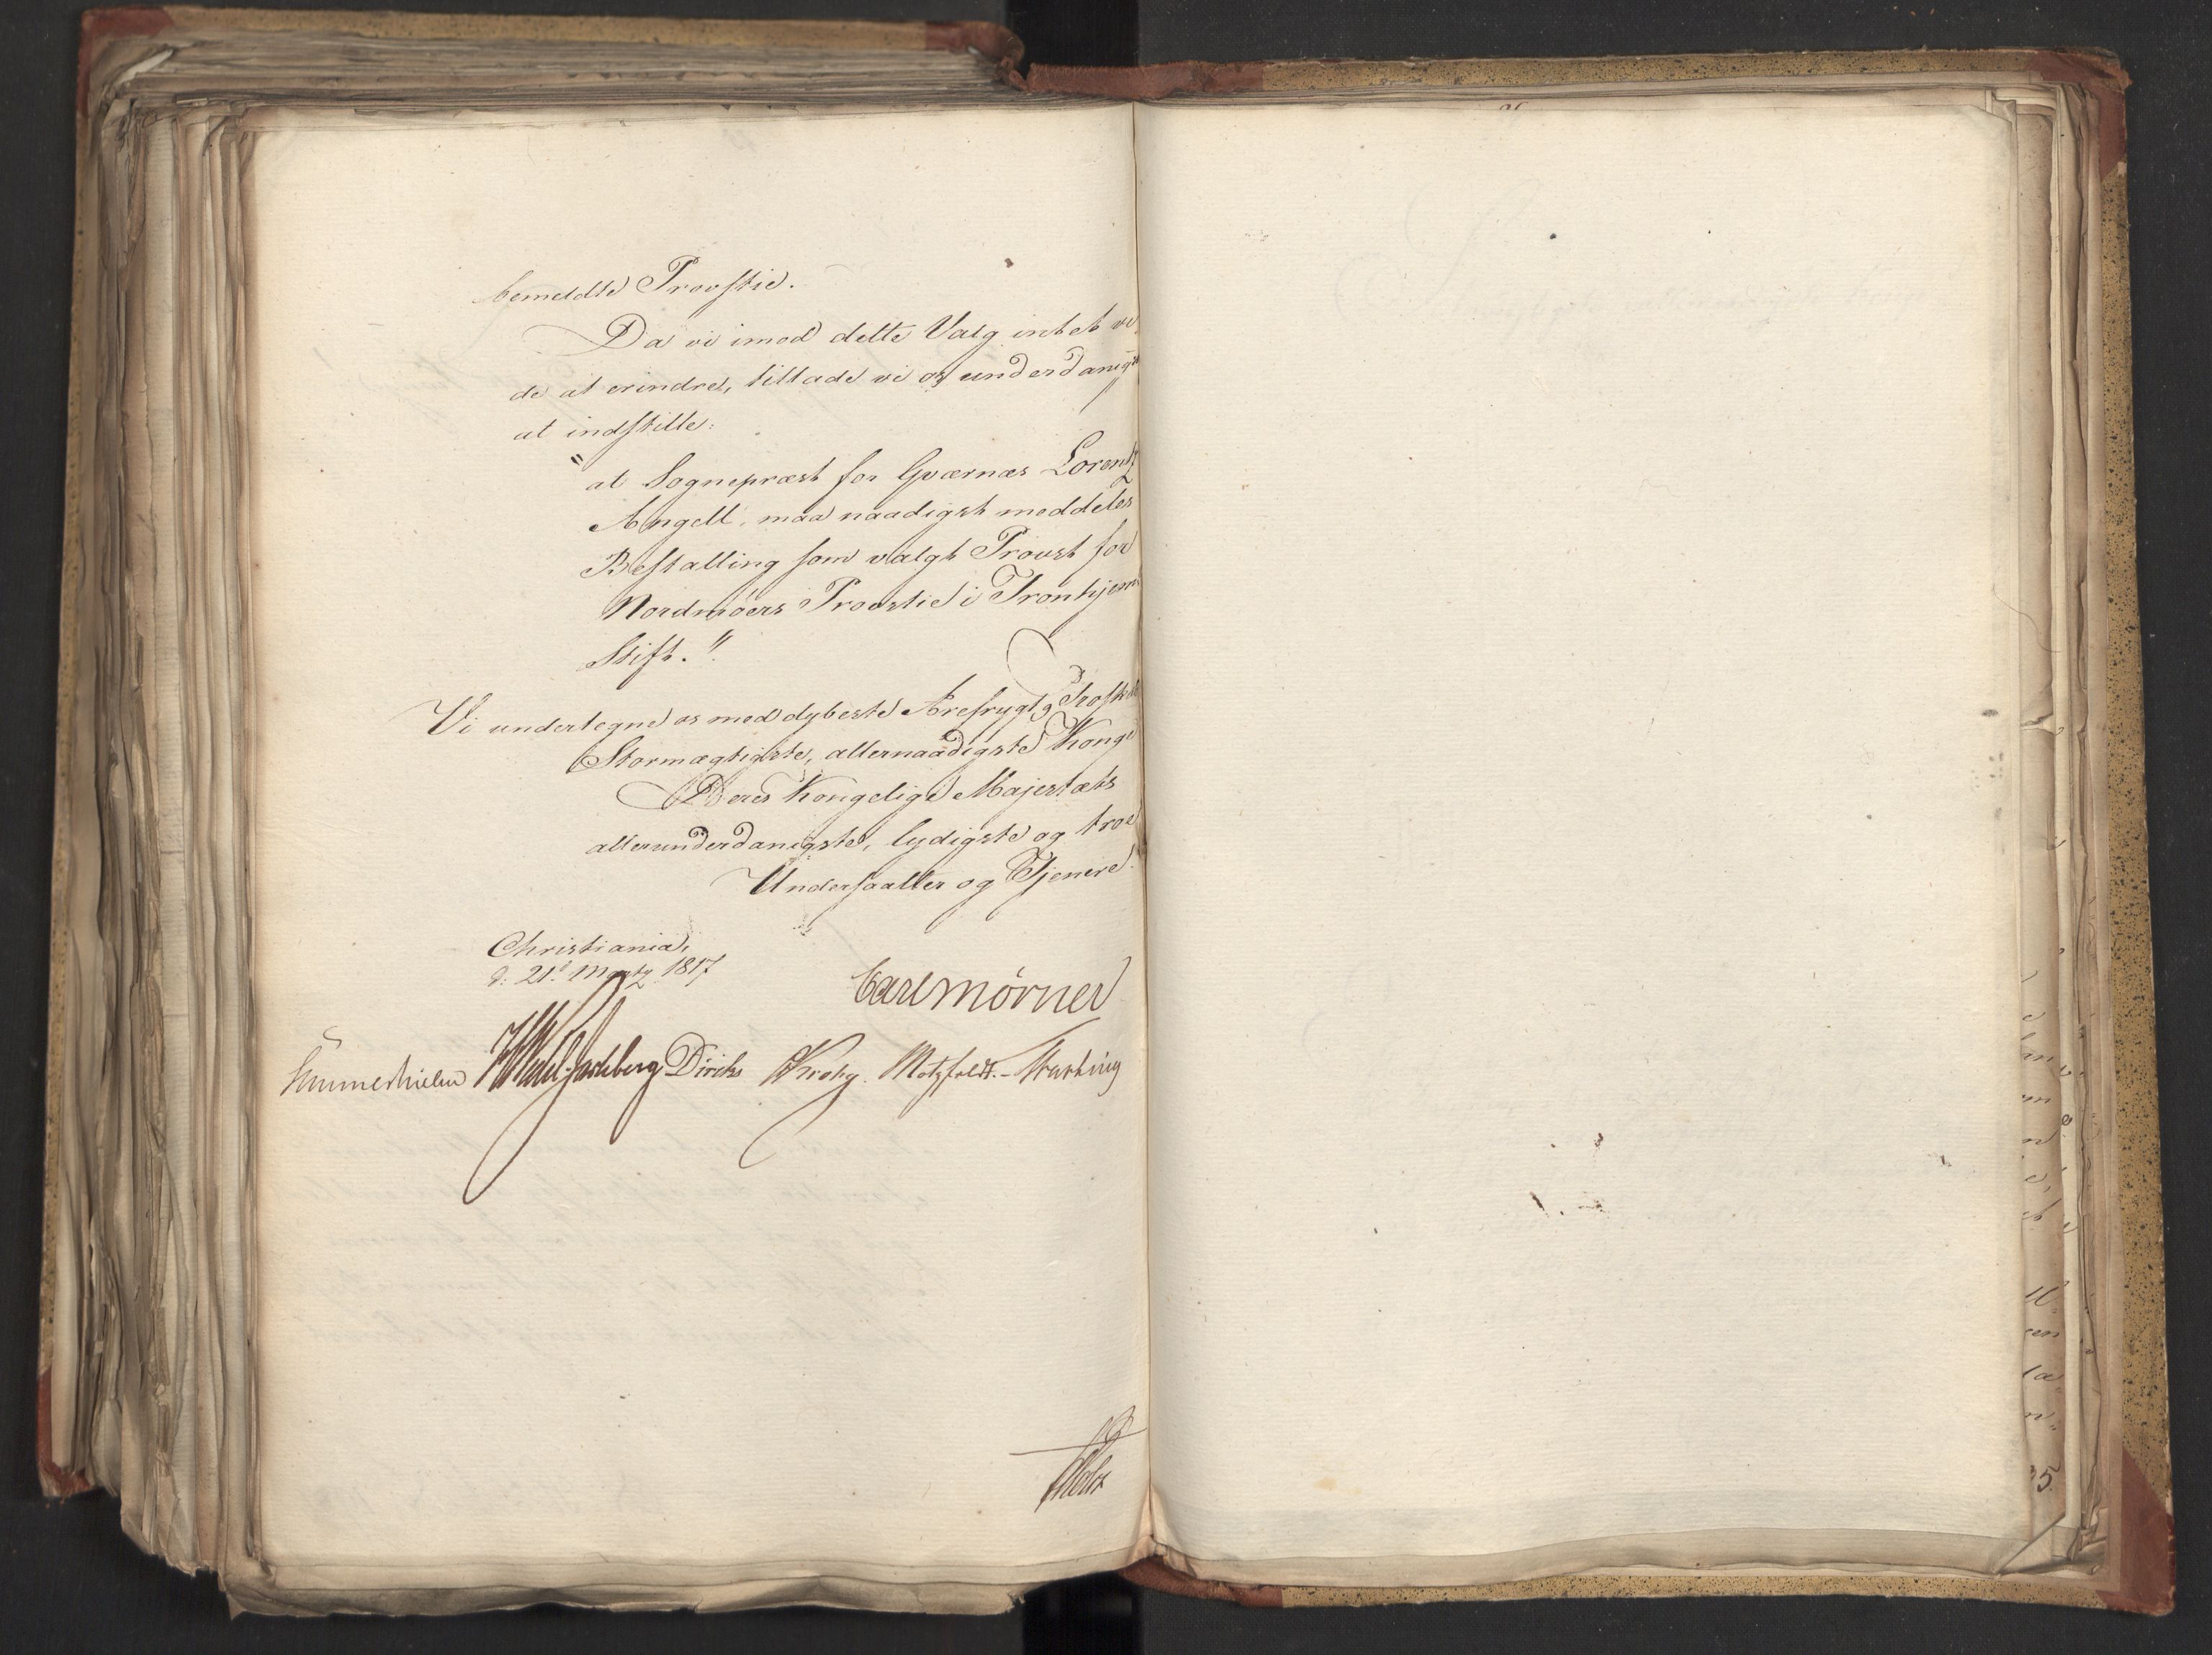 bemeldte Provstie.
Da vi imod dette Valg intet vi-
de at erindre, tillade vi os underdanigst
at indstille:
"at Sognepræst for Qværnæs Lorentz
Angell, maa naadigst meddeles
Bestalling som valgt Provst for
Nordmöers Provstie i Tronhjems
Stift."
Vi undertegne os med dybeste Ærefrygt og Troskab
Stormægtigste, allernaadigste Konge
Deres Kongelige Majestæts
allerunderdanigste, lydigste og troe
Undersaatter og Tjenere.
Christiania,
d: 21d Martz 1817
Carl Mörner
Sommerhielm Wedel-Jarlsberg Diriks Krohg. Motzfeldt.-
Holst